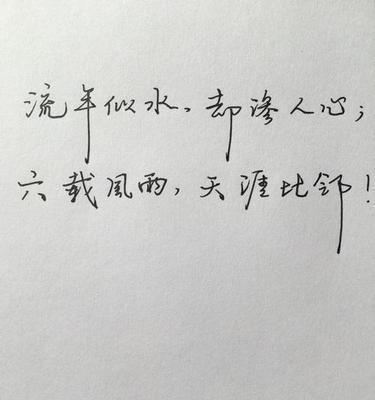 流年似水、却渗人心；
六载風雨，天涯比邻！